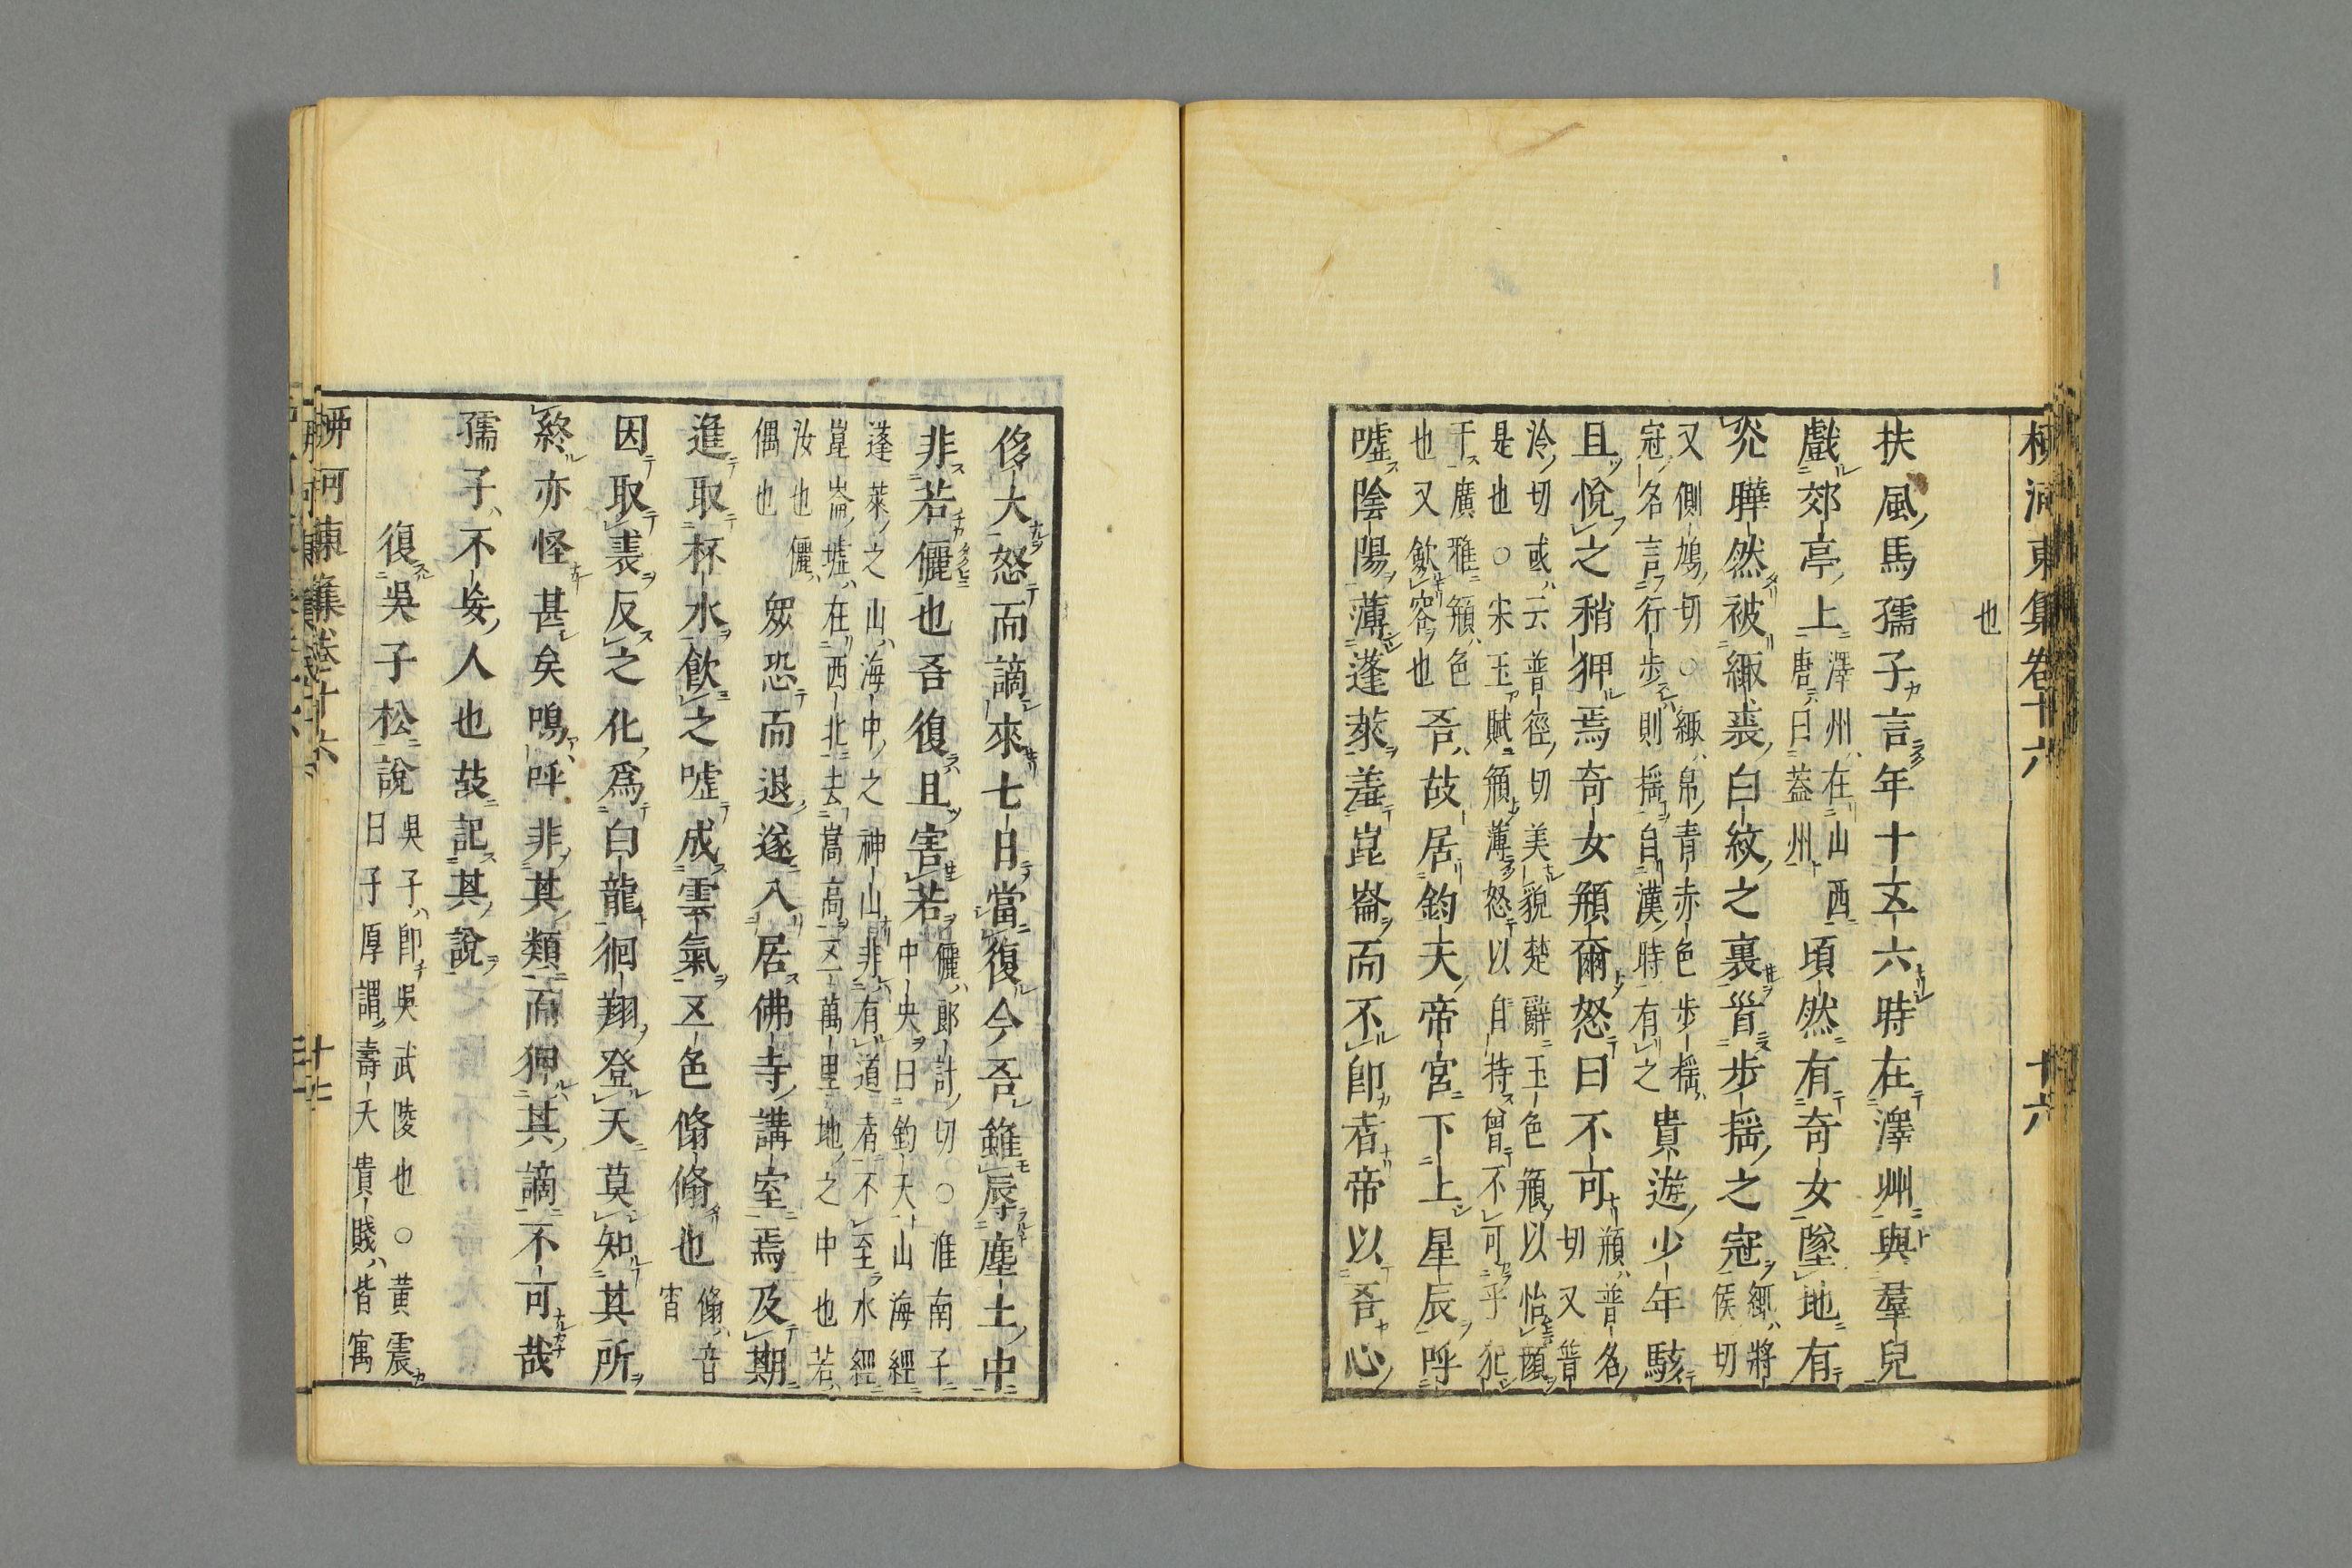 柳河東集卷十六　十六
也
扶風馬孺子言年十五六時在澤州與羣兒
戲郊亭上澤州在山西唐曰蓋州頃然有奇女墜地有
光曄然被緅裘白紋之裏首步搖之冠緅將侯切
又側鳩切○緅帛青赤色步搖冠名言行步則搖自漢時有之貴遊少年駭
且悅之稍狎焉奇女頩爾怒曰不可頩普名切又普
泠切或云普徑切美貌楚辭玉色頩以怡顏是也○宋玉賦頩薄怒以自持曾不可乎犯
于廣雅頩色也又歛容也吾故居鈞夫帝宮下上星辰呼
噓陰陽薄蓬萊羞崑崙而不即者帝以吾心
侈大怒而謫來七日當復今吾雖辱塵土中
非若儷也吾復且害若儷郎計切○淮南子中央曰鈞天山海經
蓬萊之山海中之神山非有道者不至水經崑崙墟在西北去嵩高五萬里地之中也若
汝也儷偶也眾恐而退遂入居佛寺講室焉及期
進取杯水飲之噓成雲氣五色翛翛也翛音宵
因取裘反之化爲白龍徊翔登天莫知其所
終亦怪甚矣嗚呼非其類而狎其謫不可哉
孺子不妄人也故記其說
復吳子松說吳子即吳武陵也○黃震曰子厚謂壽夭貴賤皆寓
柳河東集卷十六　十七